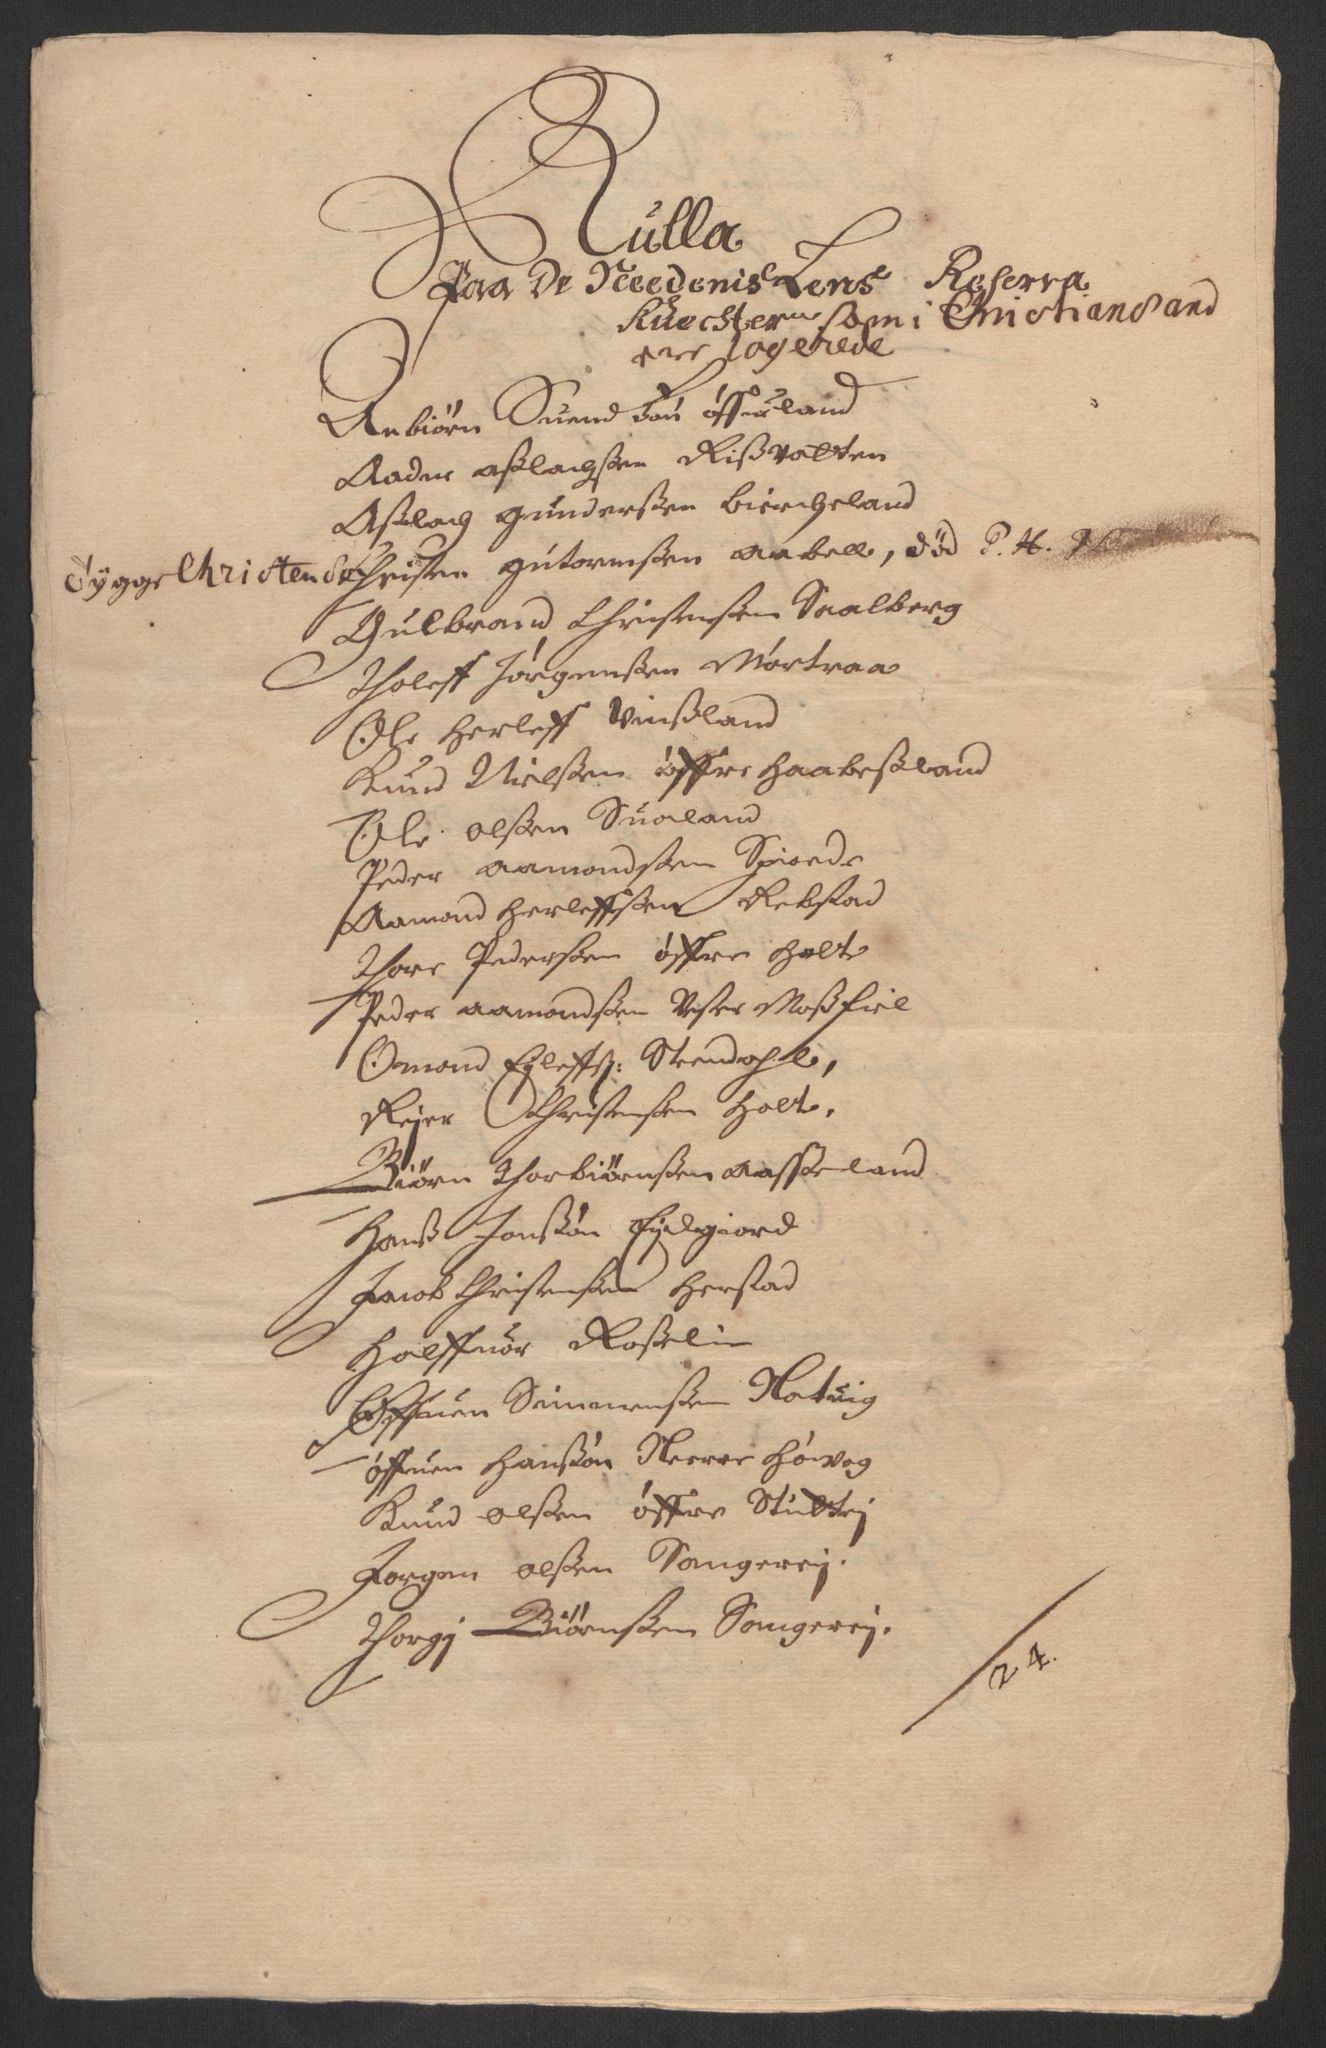 Rulla
Paa De Needenis Lens Reserva
Knechter som i Christiansand
ere logerede
Anbiörn Suendsön öffuland
Aadne Aslachsen Rißvolten
Aslach gundersen biercheland
Tÿgge Christens Christen gutormsen aabell, död P. H.
Gulbrand Christensen Saalberg
Tholeff Jörgensen Mörtraa
Ole Herleff Vinsland
Knud Nielsen öffre Haabesland
Ole olsen Sualand
Peder aamondsen Spiode
Aamond Herleffsen Rebstad
Thore Pedersen öffre Holte
Peder aamondsen Vester Moßfiel
Omond Eyleffs: Steendahl,
Rejer Christensen Holt.
Biörn Thorbiörnsen aasseland
Hans Jonsön Eydgiord
Jacob Christensen Herstad
Halffuor Roßeli
Öffuen Simmensen Natuig
öffuen Hansön Neerre höivog
Knud olsen öffre Stubtej
Jorgen olsen Songereij.
Thorgj Biörnsen Songereij.
24.